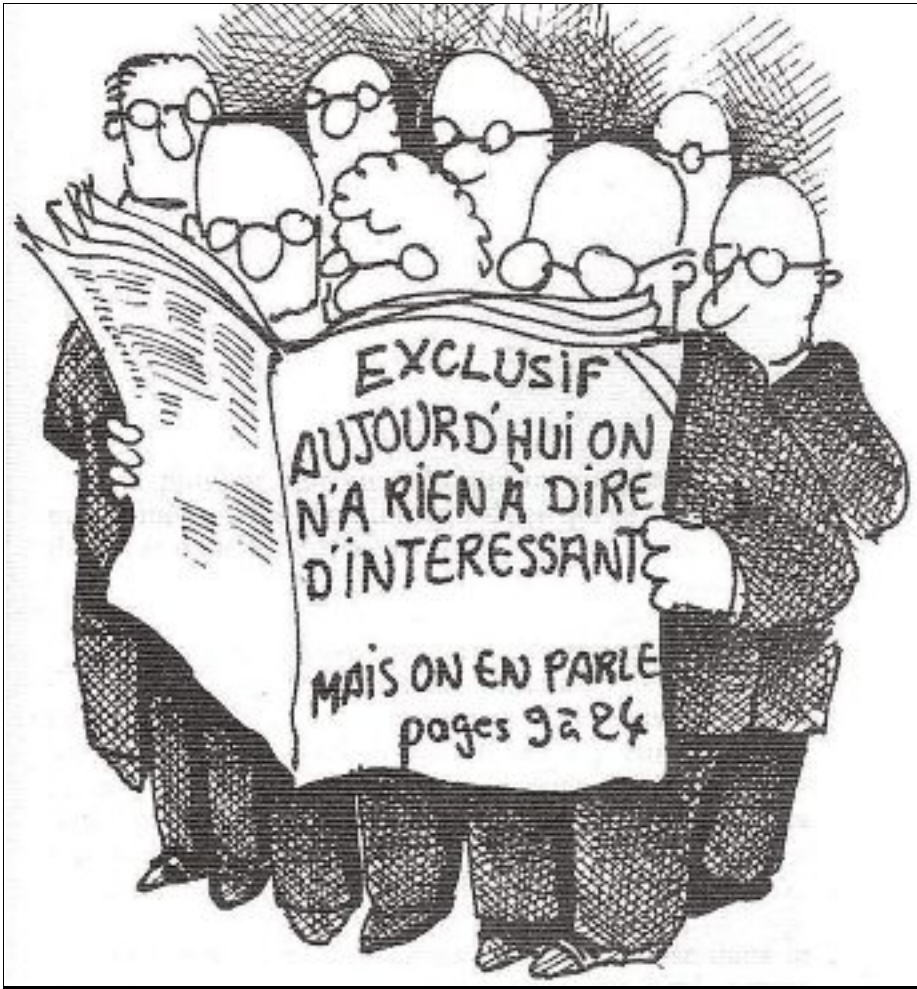 EXCLUSiF
AUJOURD'HUi ON
N'A RiEN À DiRE
D'iNTERESSANT
MAiS ON EN PARLE
pages 9 à 24